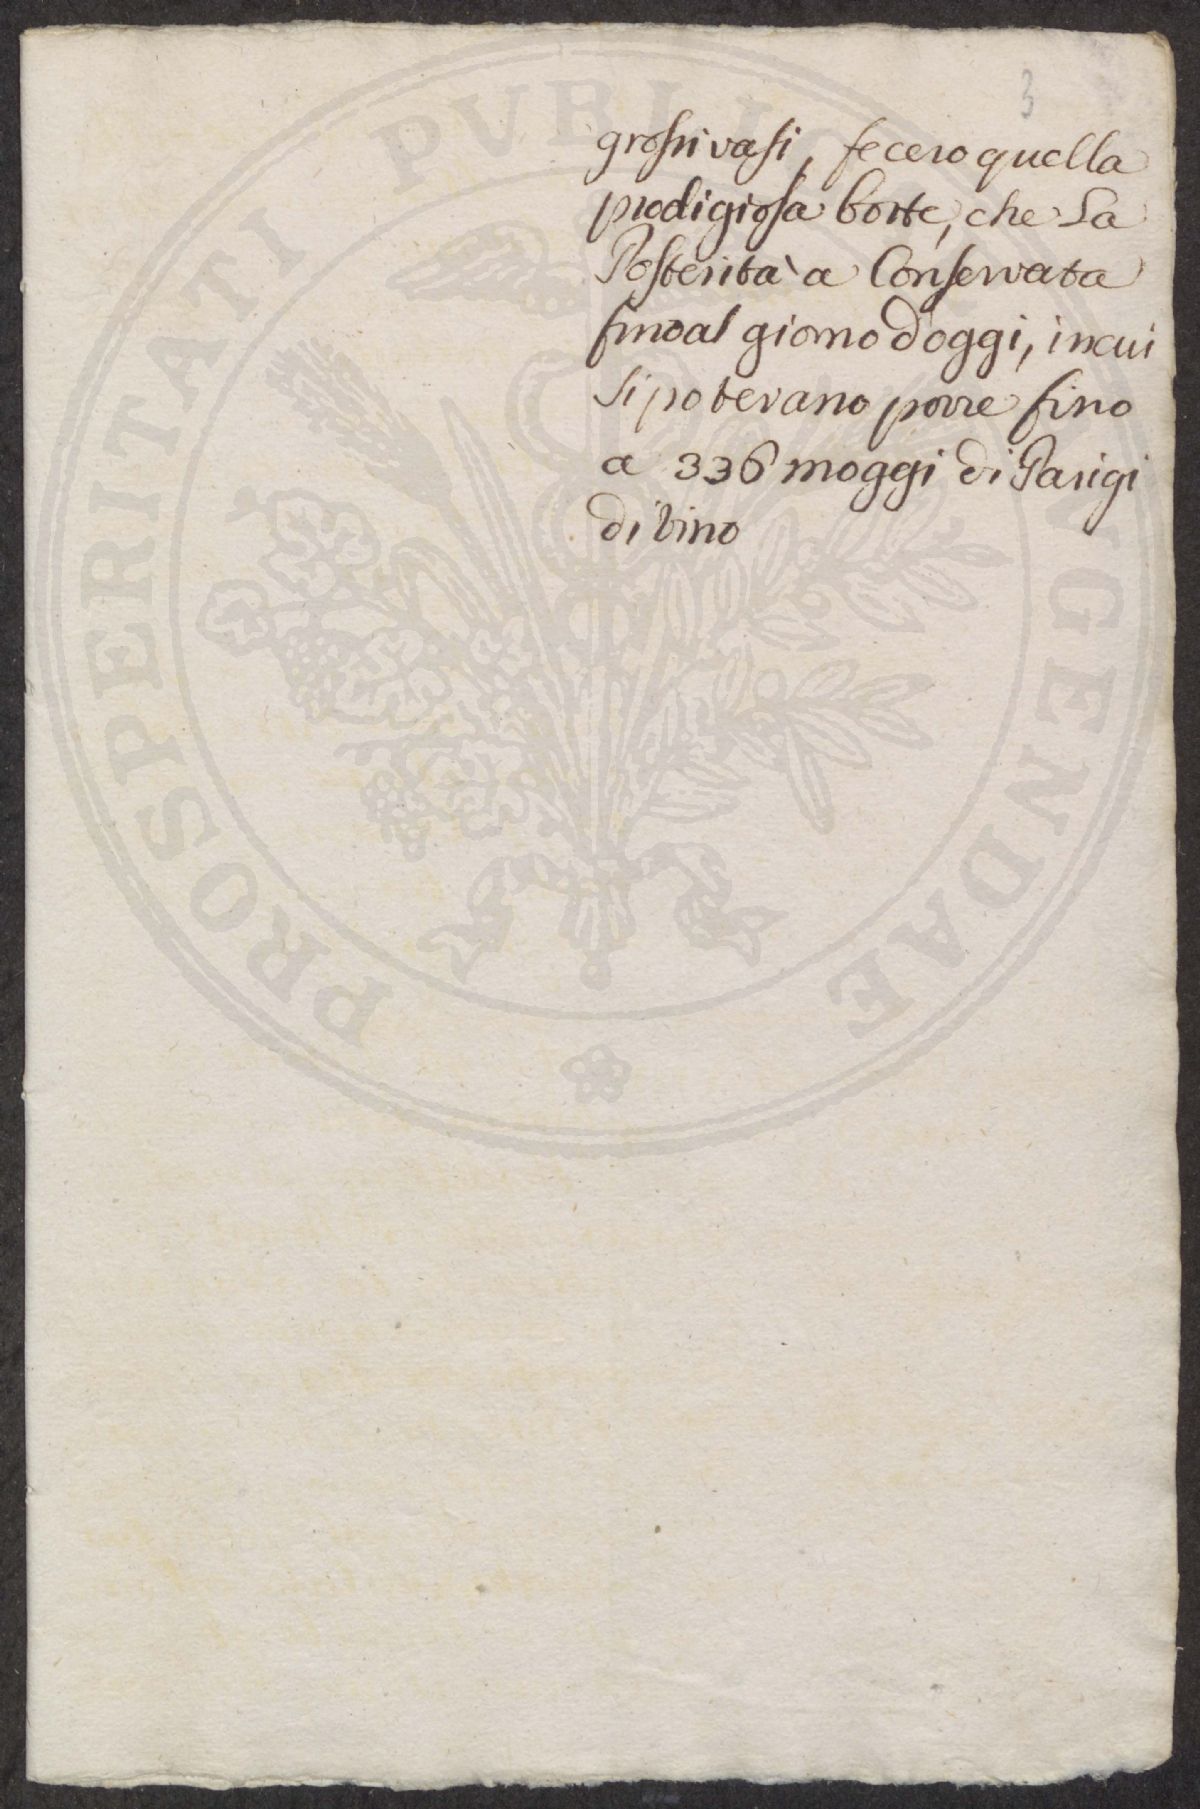 3
grossi vasi, fecero quella
prodigiosa botte, che La
Posterità a Conservata
fino al giorno d'oggi, in cui
si potevano porre fino
a 336 moggi di Parigi
di vino
PROSPERITATI PVBLICAE AVGENDAE